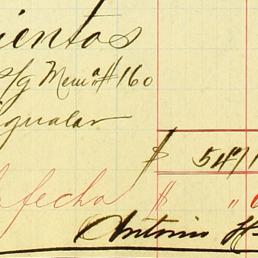 ientos
s/g Mem a # 160
igualar
$ 547 1
fecha $ "
Antonio H